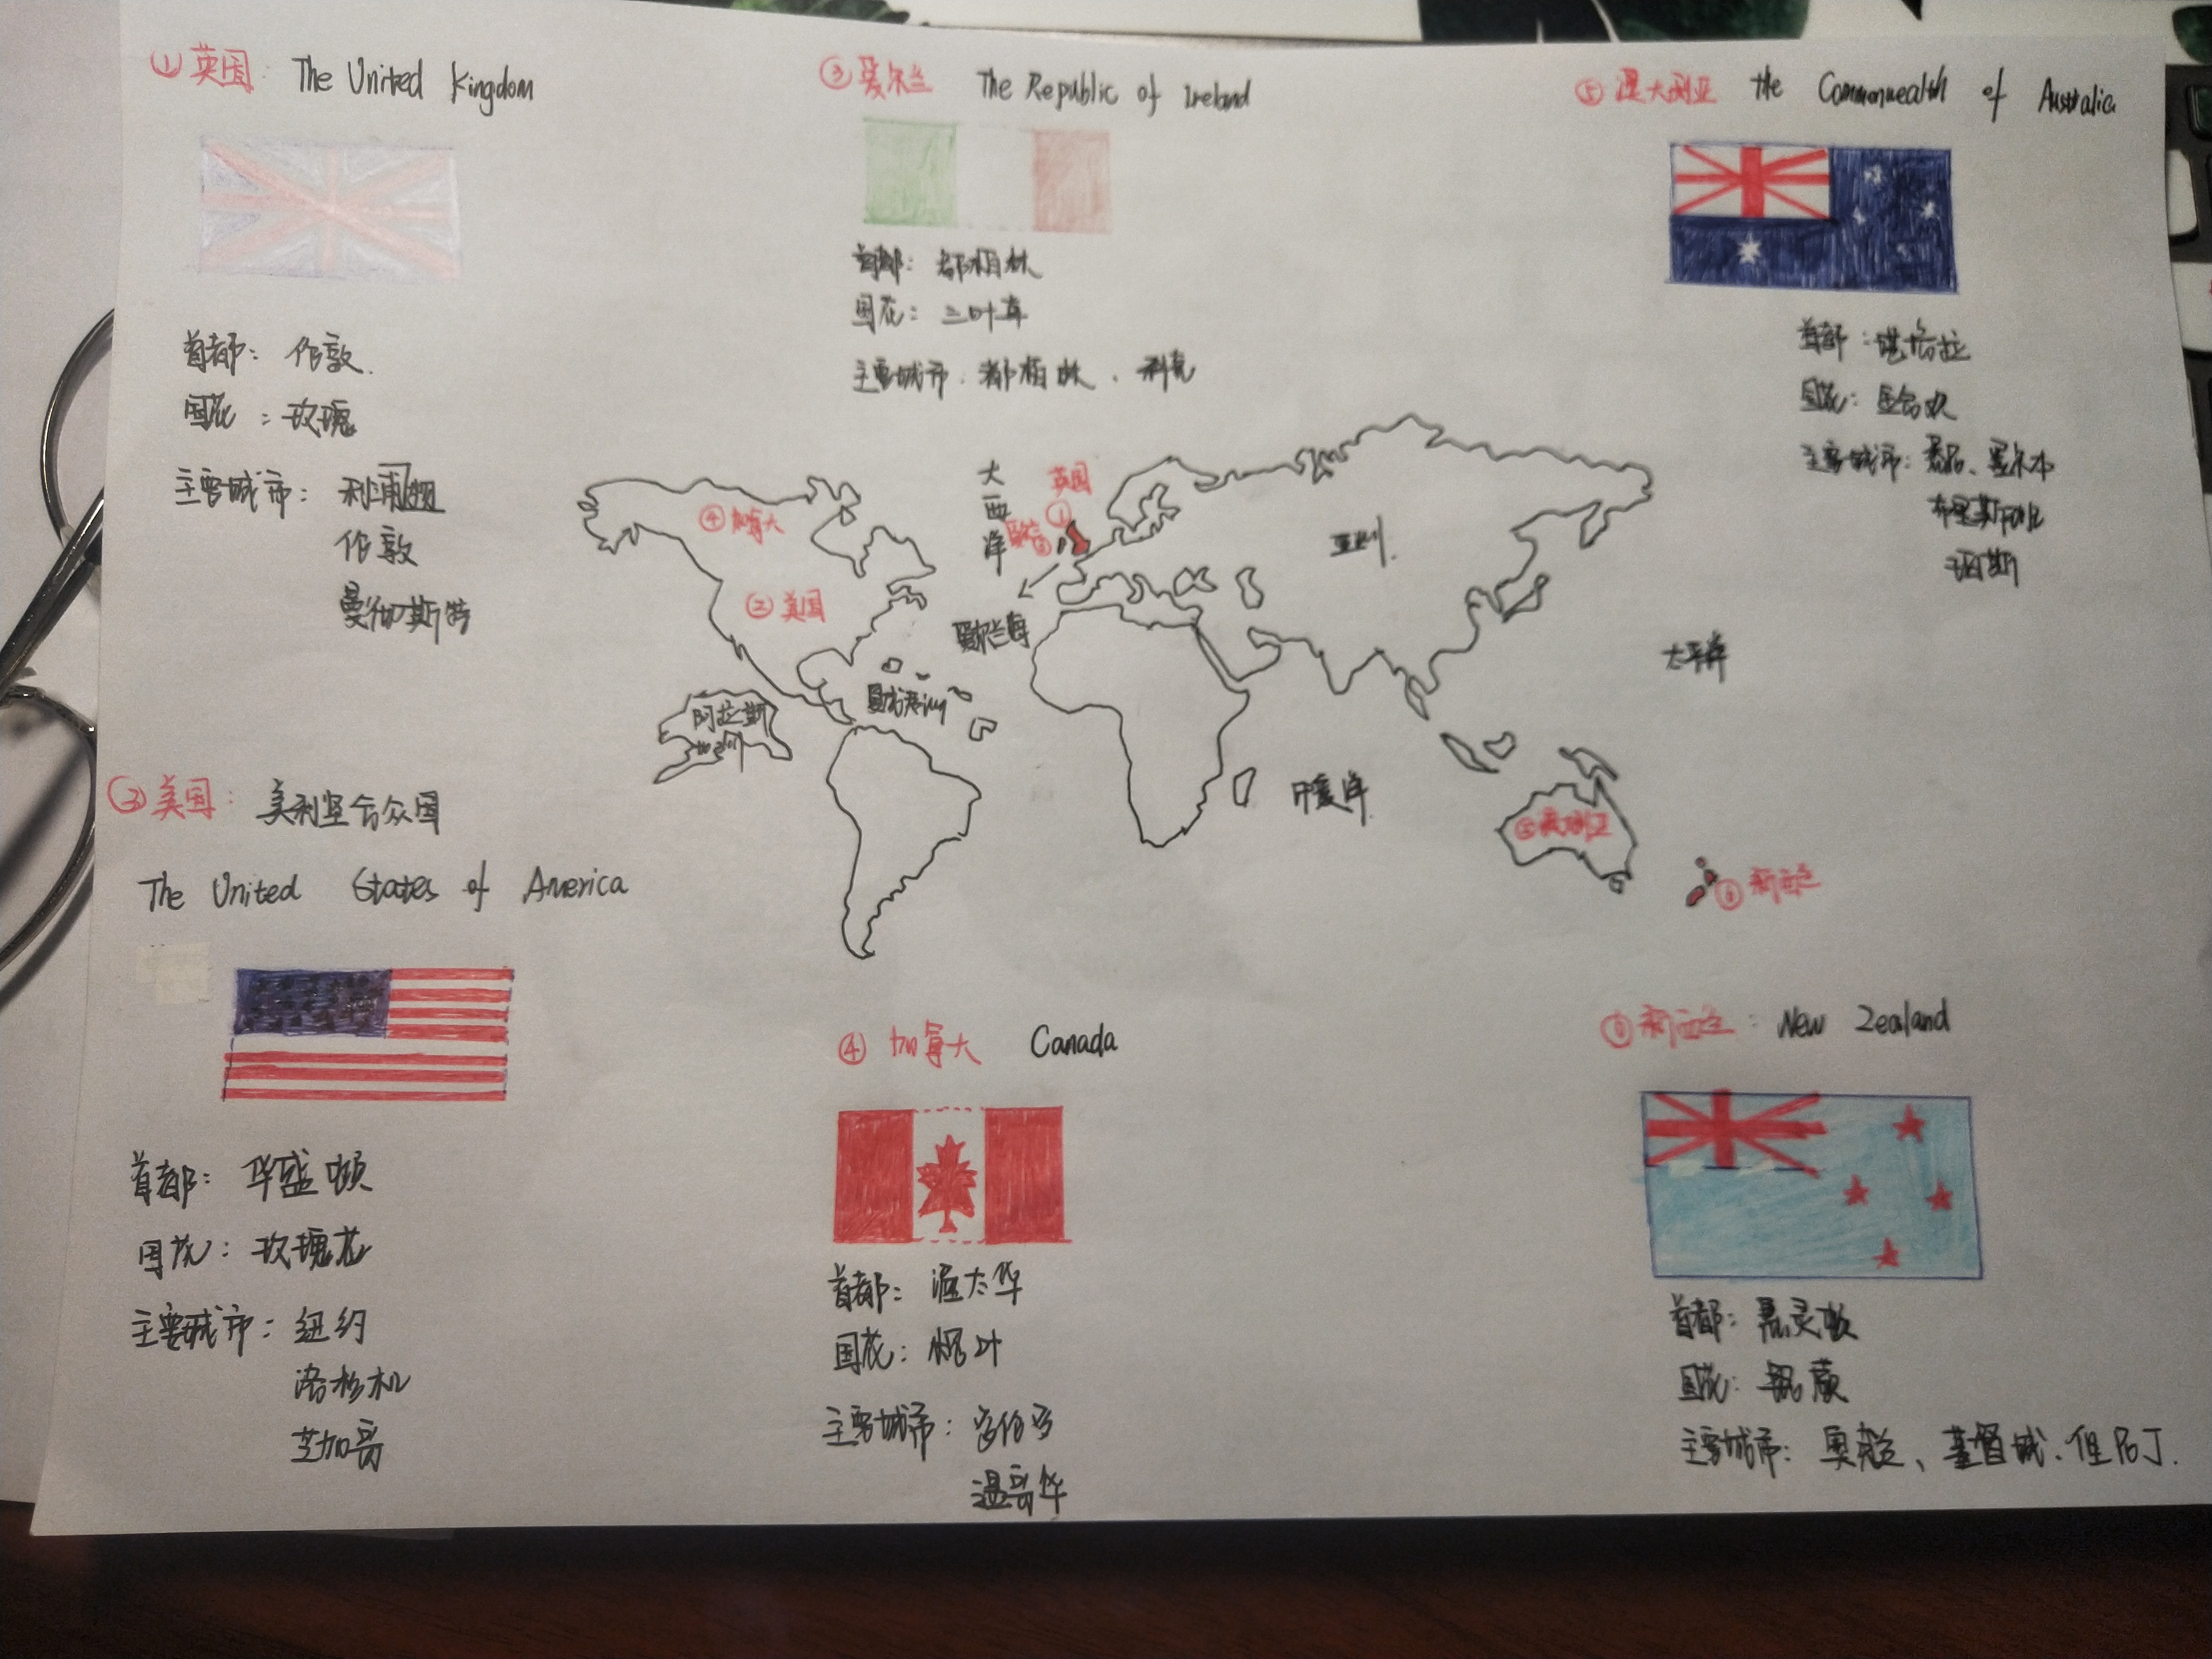 ① 英国: The United Kingdom
首都: 伦敦.
国花: 玫瑰
主要城市: 利浦
伦敦
曼彻斯特
② 美国: 美利坚合众国
The United States of America
首都: 华盛顿
国花: 玫瑰花
主要城市: 纽约
洛杉机
芝加哥
③ 爱尔兰 The Republic of Ireland
首都: 都柏林
国花: 三叶草
主要城市: 都柏林、科克
大西洋
英国
①
爱尔兰
③
④ 加拿大
② 美国
爱尔兰海
亚洲.
太平洋
阿拉斯
夏威夷
印度洋
⑤ 澳大利亚
⑥ 新西兰
④ 加拿大 Canada
首都: 渥太华
国花: 枫叶
主要城市: 多伦多
温哥华
⑤ 澳大利亚 the Commonwealth of Australia
首都: 堪培拉
国花: 金合欢
主要城市: 悉尼、墨尔本
布里斯班
珀斯
⑥ 新西兰: New Zealand
首都: 惠灵顿
国花: 银蕨
主要城市: 奥克兰、基督城、但尼丁.